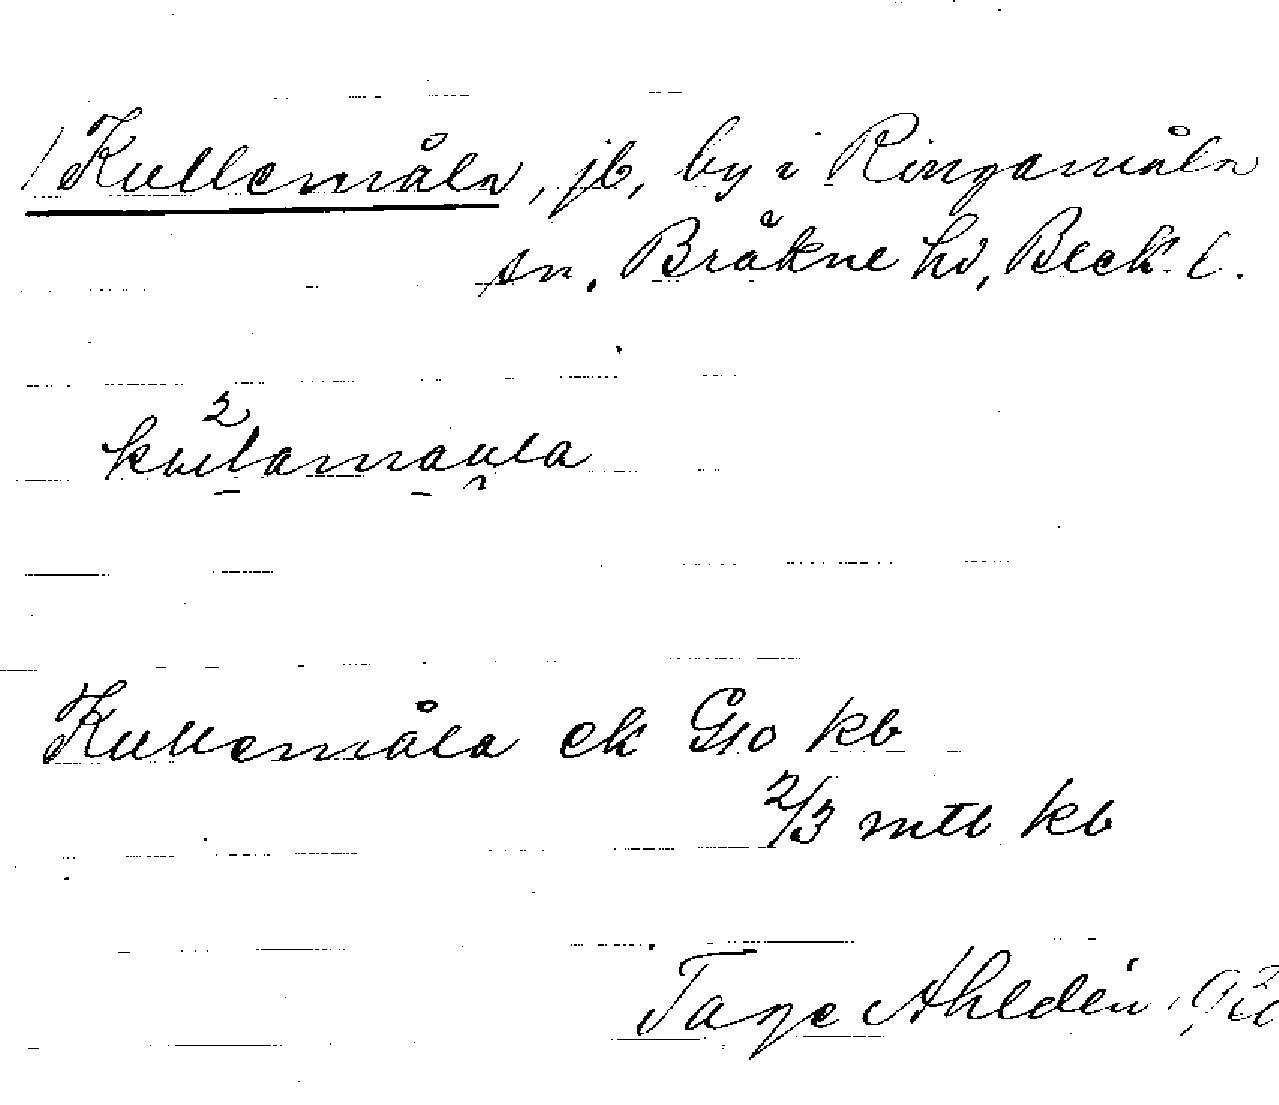 Kullemåla, jb, by i Ringamåla
sn. Bräkne hd, Blek. l.
2
kullamaula
Kullemåla ek G10 kb
2/3 mtl kb
Tage Ahldén